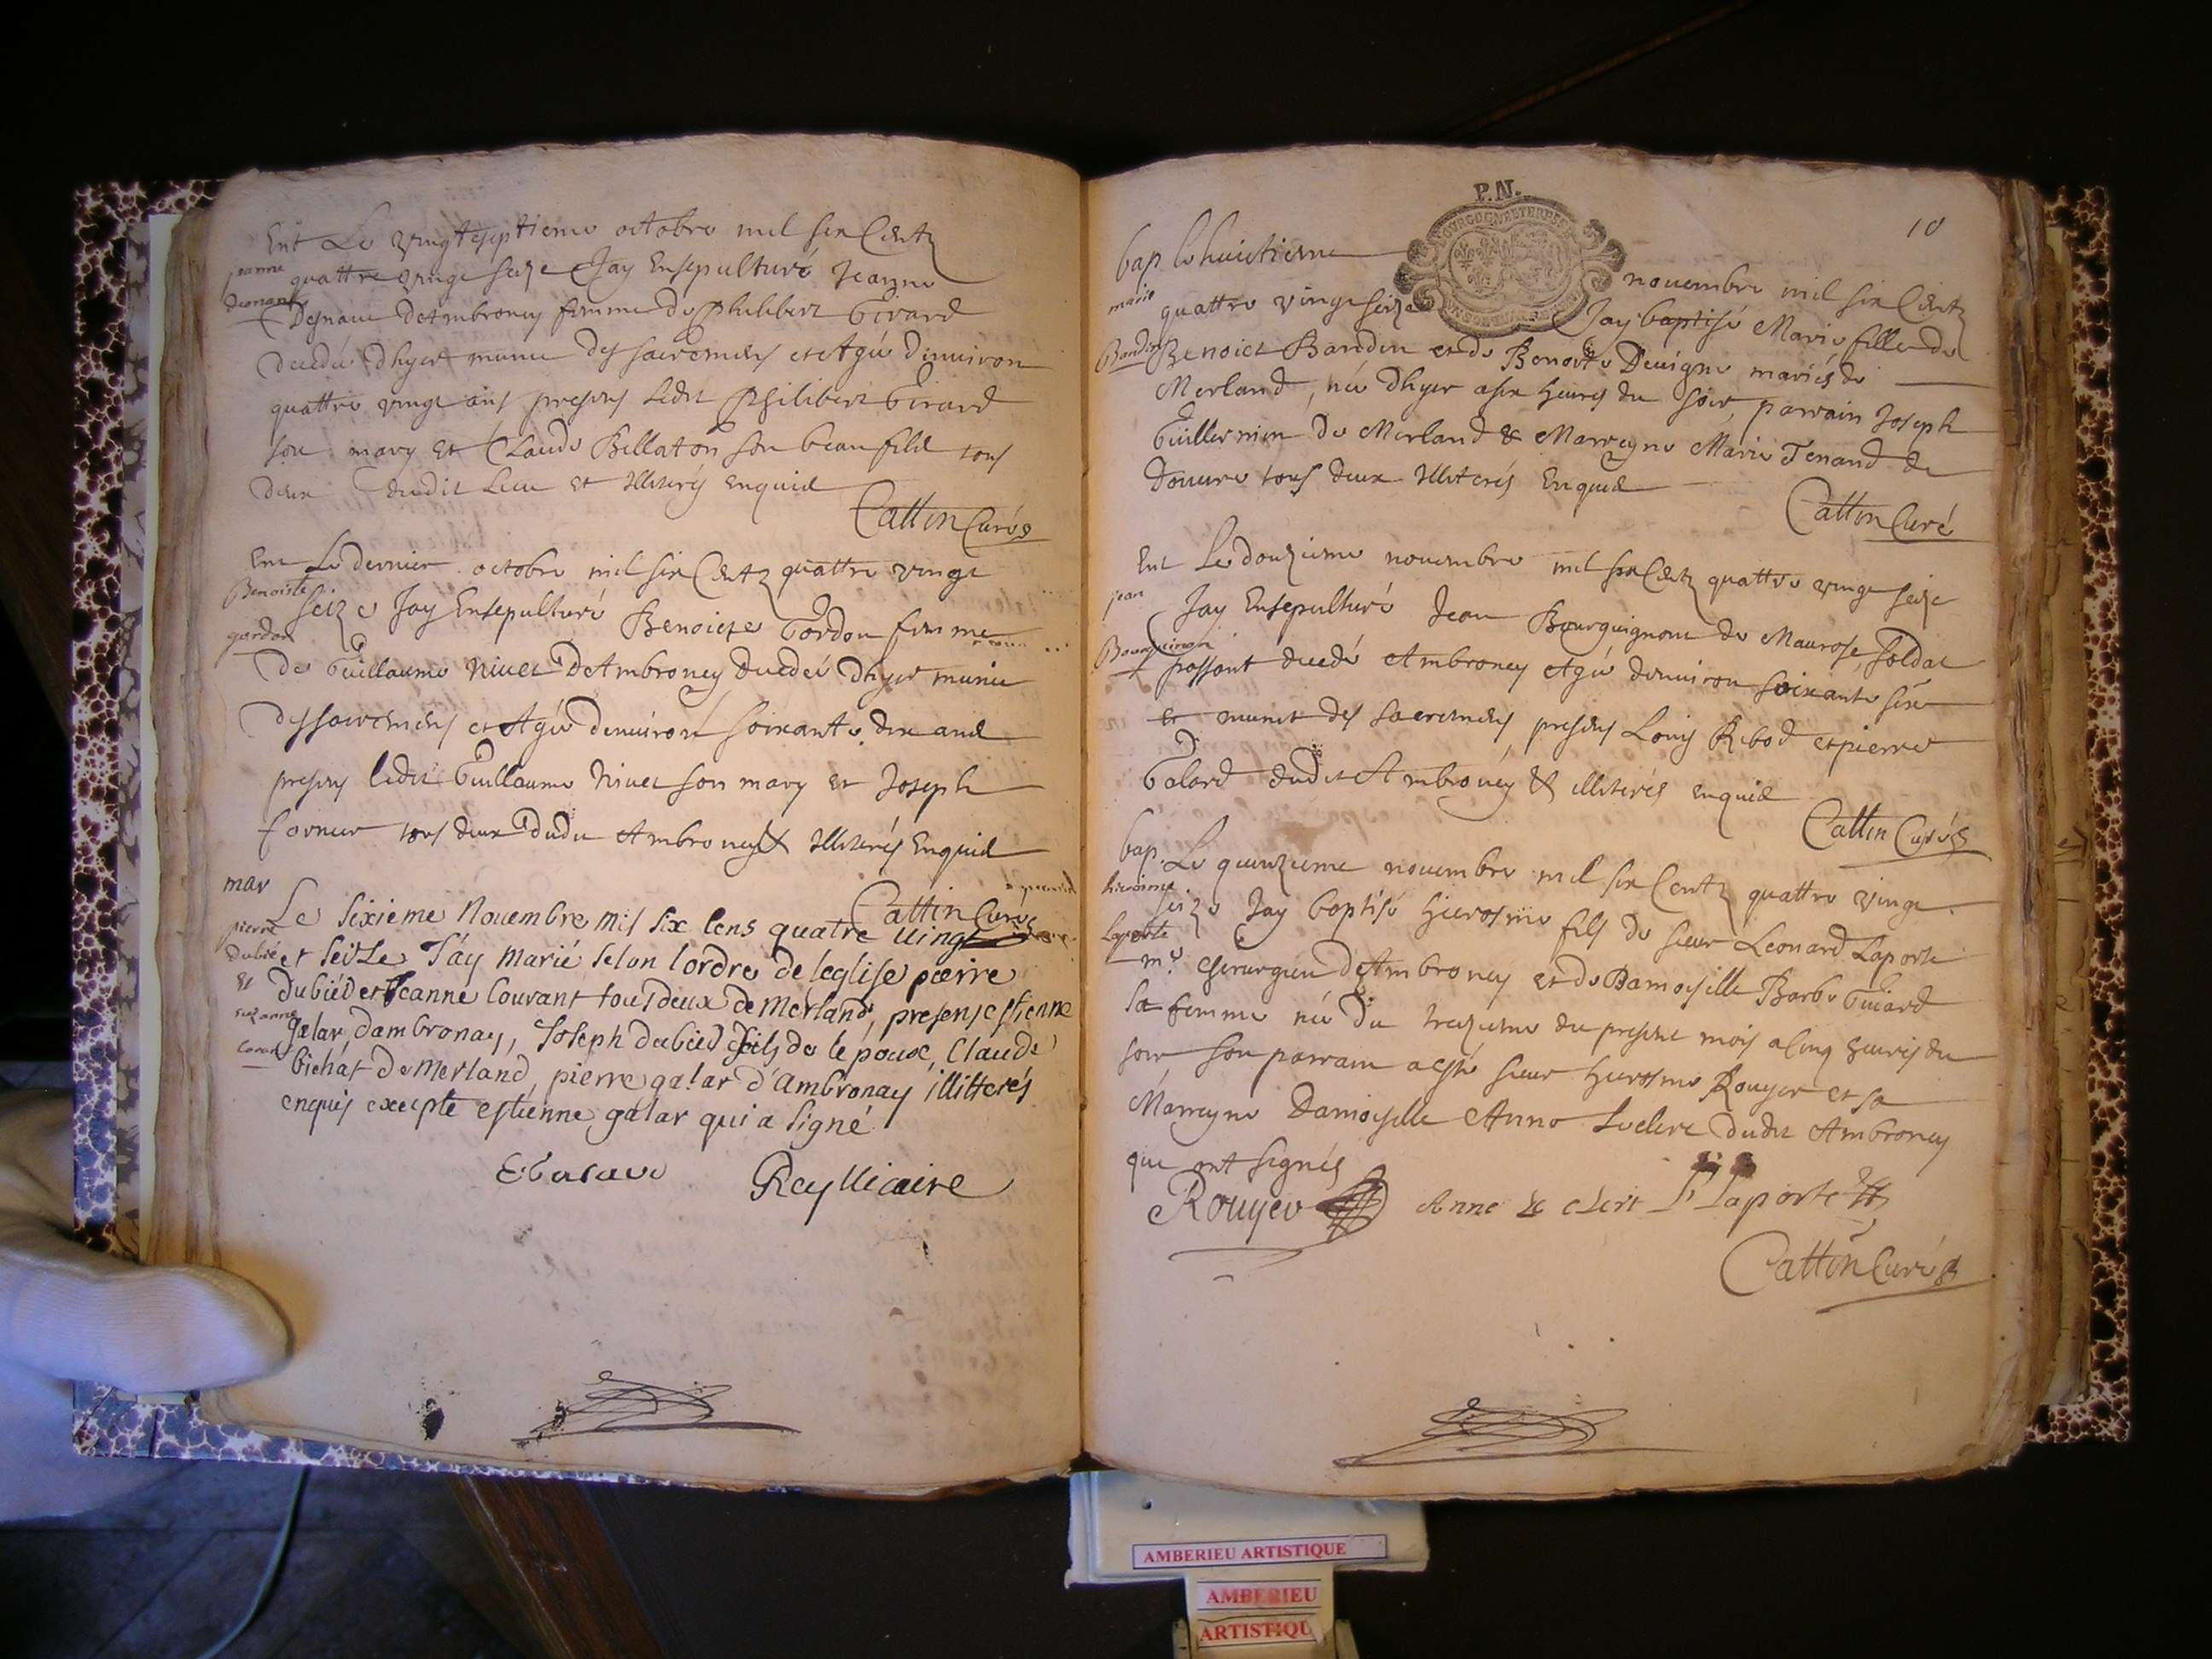 Ent Le vingt septieme octobre mil six Centz
jeanne
quattre vingt seize Jay Ensepulturé Jeanne
D'Ambroney femme de philibert Girard
decedée dhyer munie des sacremens et Agée dinuiron
quattre vingt ans presens Ledit philibert Girard
son mary et Claude Bellaton son beau fild tous
deux dudit Lieu et Illiterés enquis
Cattin Curé
Ent Le dernier octobre mil six Centz quattre vingt
Benoiste
seize Jay Ensepulturé Benoiste Gordon femme
gordon
de Guillaume nivet D'Ambroney decedée dhyer munie
des sacremens et Agée denuiron soixante dix ans
presens ledit Guillaume Nivet son mary et Joseph
fornier tous deux dudit Ambroney & Illiterés Enquis
Cattin Curé
mar
Le sixieme Nouembre mis six cens quatre uingt
pierre
dubié
et seize J'áy marié selon lordre de leglise pierre
et
dubiéd et Jeanne Couvant tous deux de Merland, presens estienne
suzanne
galar, dambronay, Joseph dubiéd fils de lépoux, Claude
bichat de merland, pierre galar d'Ambronay illitterés
enquis excepté estienne galar qui a signé
E Galard Rey Uicaire
P.N.
10
bap. le huictiesme nouembre mil six Centz
marie
quattre vingt seize Jay baptisé Marie fille de
Bandin
Benoict Bandin et de Benoiste Deuigne mariés de
Merland, née Dhyer a six heures du soir, parrain Joseph
Guillermin de Merland & Marreyne Marie Tenand de
Douure tous deux Illiterés Enquis
Cattin Curé
Ent Le douzieme nouembre mil six Centz quattre vingt seize
jean
Jay Ensepulturé Jean Bourguignon de Maurose, soldat
passant decedé Ambroney Agé denuiron soixante six
et munit des sacremens presens Louis Ribod et pierre
Galard dudit Ambroney & illiterés enquis
Cattin Curé
bap. Le quinzieme nouembre mil six Centz quattre vingt
hierosme
seize Jay baptisé hierosme fils de sieur Leonard Laporte
Laporte
me. chirurgien d'Ambroney et de Damoiselle Barbe Guiard
sa femme né du treizieme du present mois a cinq heures du
soir son parrain a esté sieur hierosme Rouyer et sa
Marreyne Damoiselle Anne Leclerc dudit Ambroney
qui ont signés
Rouyer Anne Le clerc L Laporte
Cattin Curé
AMBERIEU ARTISTIQUE
AMBERIEU
ARTISTIQU